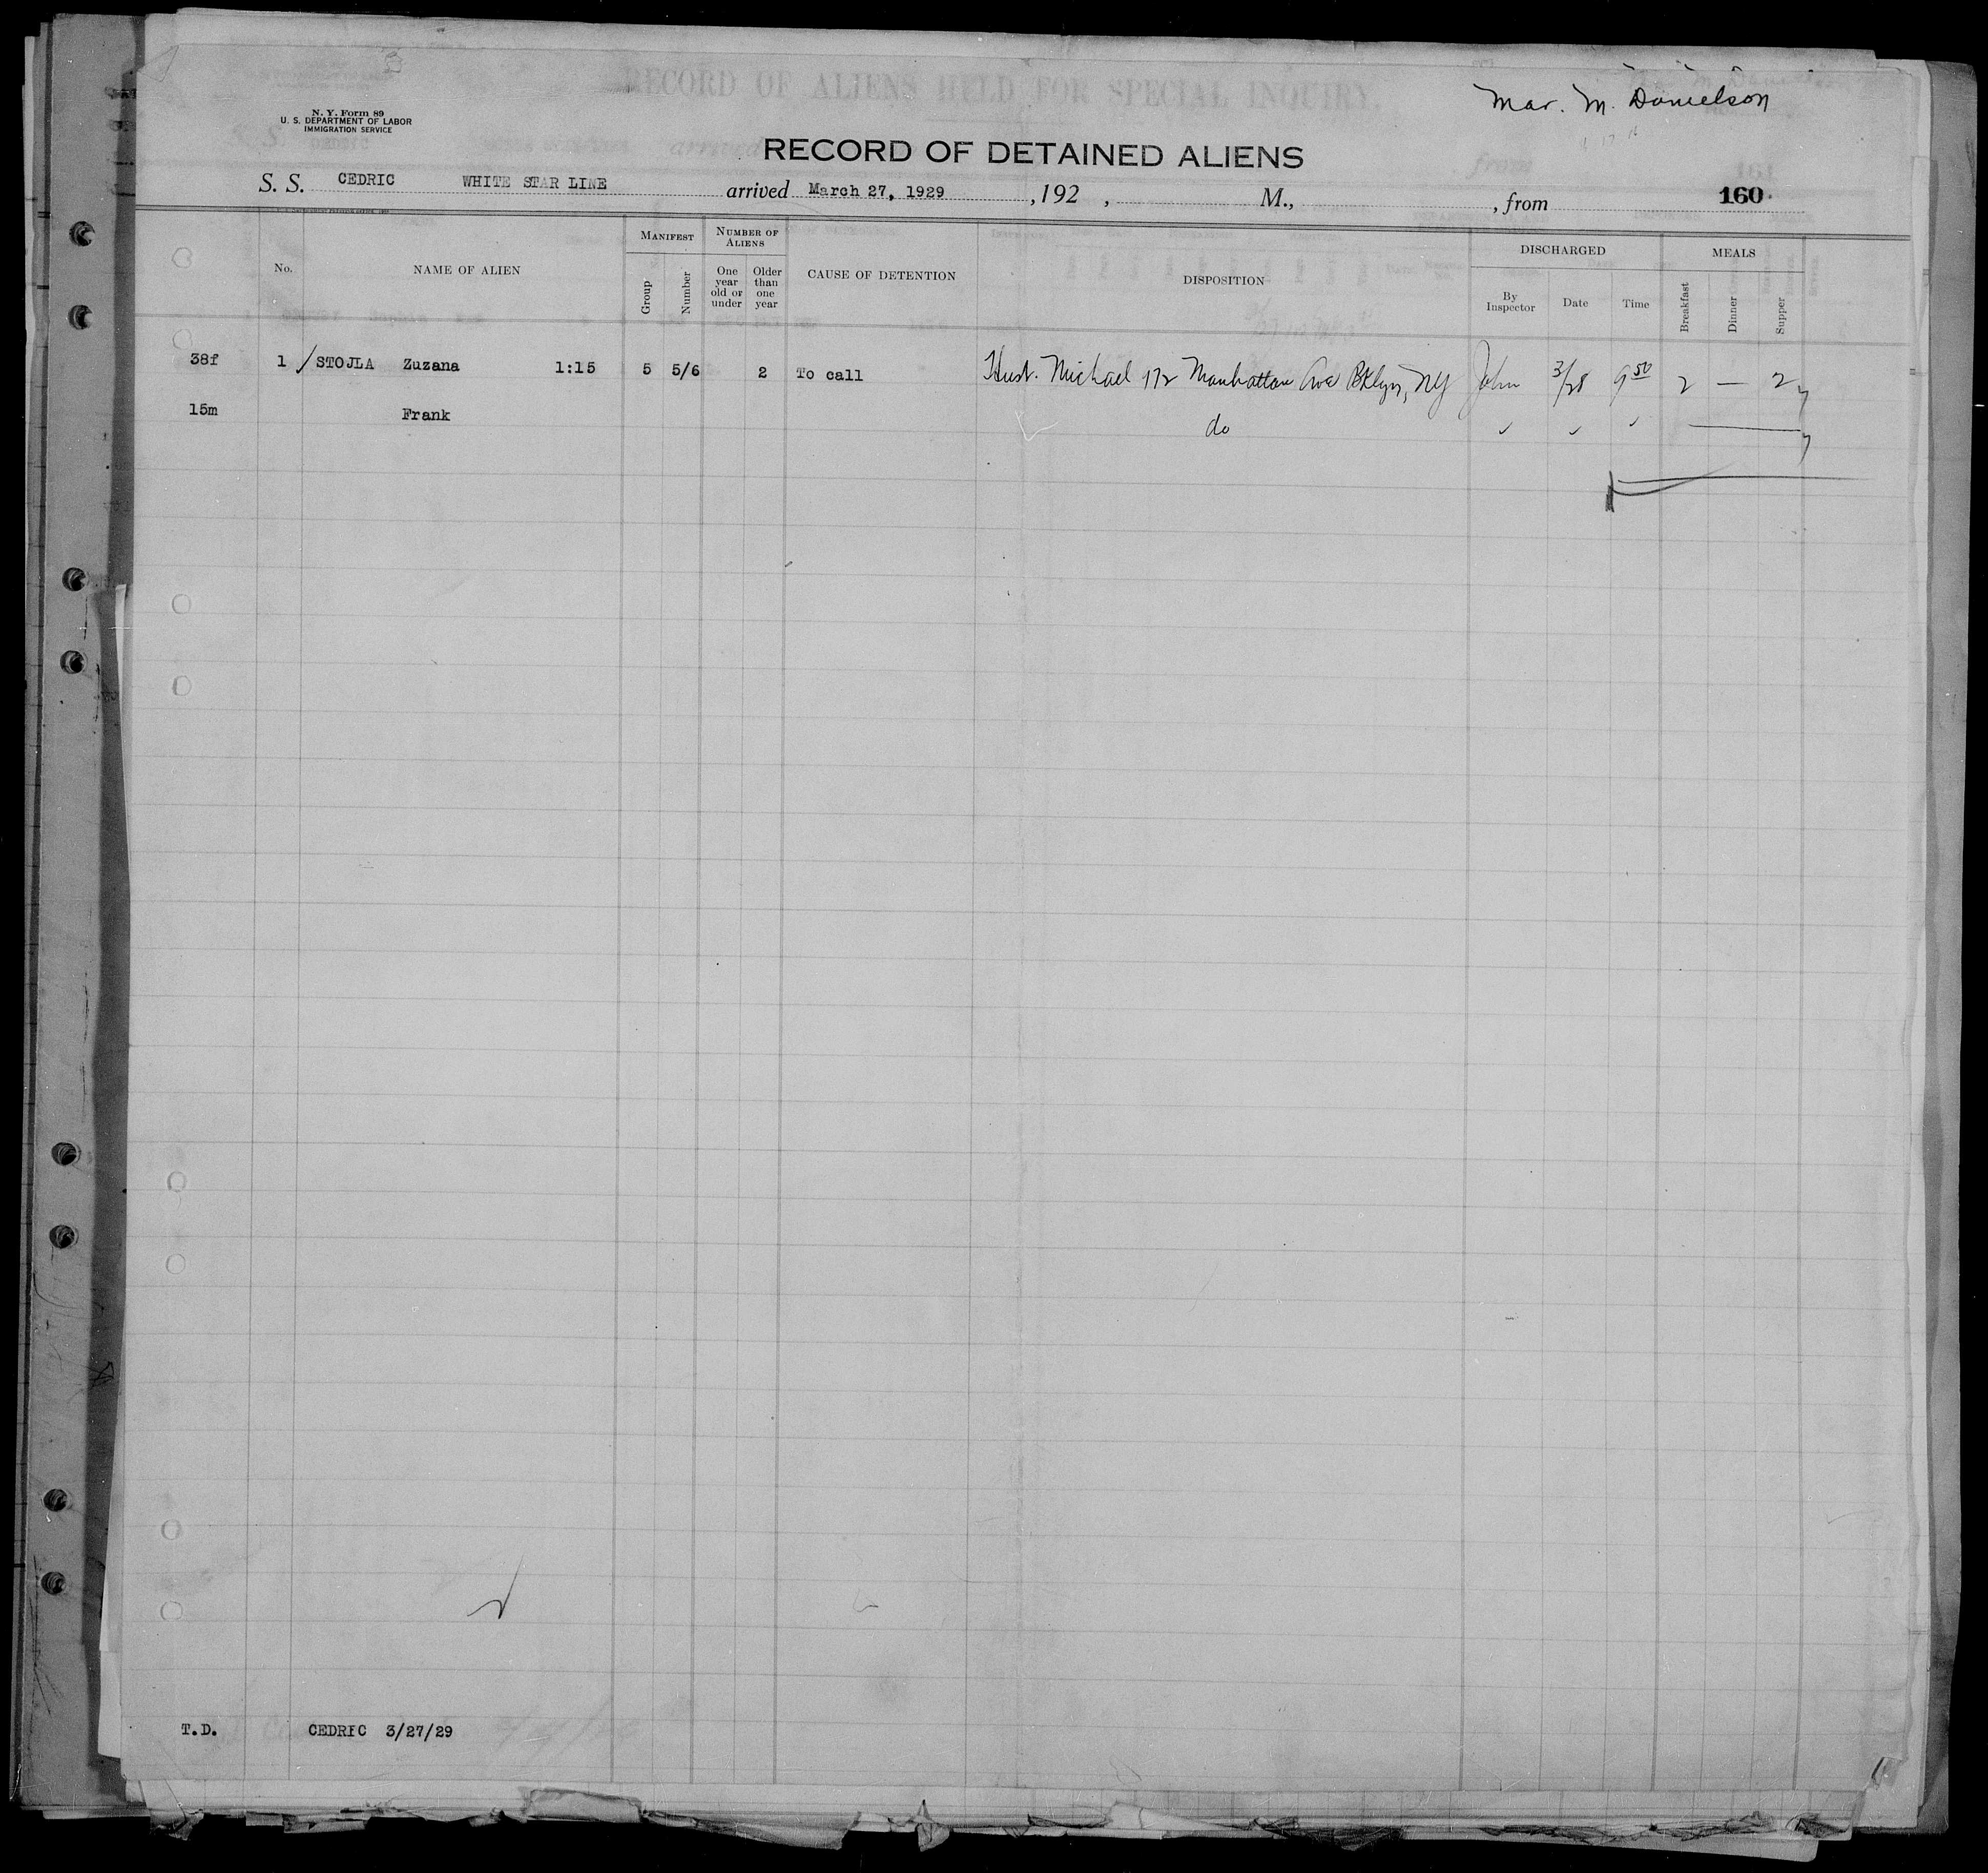 Mar. M. Danielson
N. Y. Form 89
U. S. DEPARTMENT OF LABOR
IMMIGRATION SERVICE
RECORD OF ALIENS HELD FOR SPECIAL INQUIRY.
RECORD OF DETAINED ALIENS
S. S. CEDRIC WHITE STAR LINE arrived March 27, 1929, 192 , M., , from 160
No. NAME OF ALIEN MANIFEST Group Number NUMBER OF ALIENS One year old or under Older than one year CAUSE OF DETENTION DISPOSITION DISCHARGED By Inspector Date Time MEALS Breakfast Dinner Supper
38f 1 / STOJLA Zuzana 1:15 5 5/6 2 To call Hust. Michael 172 Manhattan Ave Bklyn, NY John 3/28 9 50 2 — 2
15m Frank do
T.D. CEDRIC 3/27/29